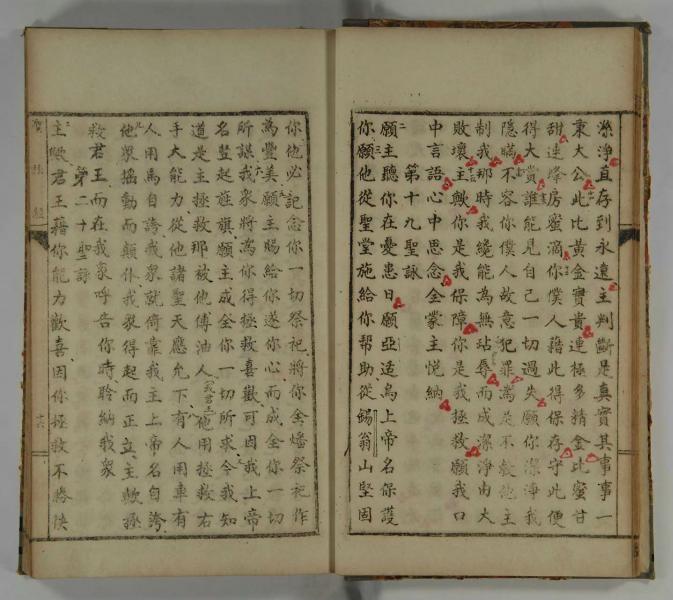 潔淨直存到永遠主判斷是真實其事事一
秉大公此比黃金寶貴連極多精金比蜜甘
甜連蜂房蜜滴你僕人藉此得保存守此便
得大賞誰能見自己一切過失願你潔淨我
隱瞞不容你僕人故意犯罪為是不教他主
制我那時我纔能為無玷辱而成潔淨由大
敗壞主歟你是我保障你是我拯救願我口
中言語心中思念全蒙主悅納
第十九聖詠
願主聽你在憂患日願亞适烏上帝名保護
你願他從聖堂施給你幇助從錫翁山堅固
你他必記念你一切祭祀將你全燔祭祀作
為豐美願主賜給你遂你心而成全你一切
所謀我衆將為你得拯救喜歡可因我上帝
名豎起旌旗願主成全你一切所求今我知
道是主拯救那被他傅油人(我君王)他用拯救右
手大能力從他諸聖天應允下有人用車有
人用馬自誇我衆就倚靠我主上帝名自誇
他衆搖動而顛仆我衆得起而正立主歟拯
救君王而在我衆呼告你時聆納我衆
第二十聖詠
主歟君王藉你能力歡喜因你拯救不勝快
十六